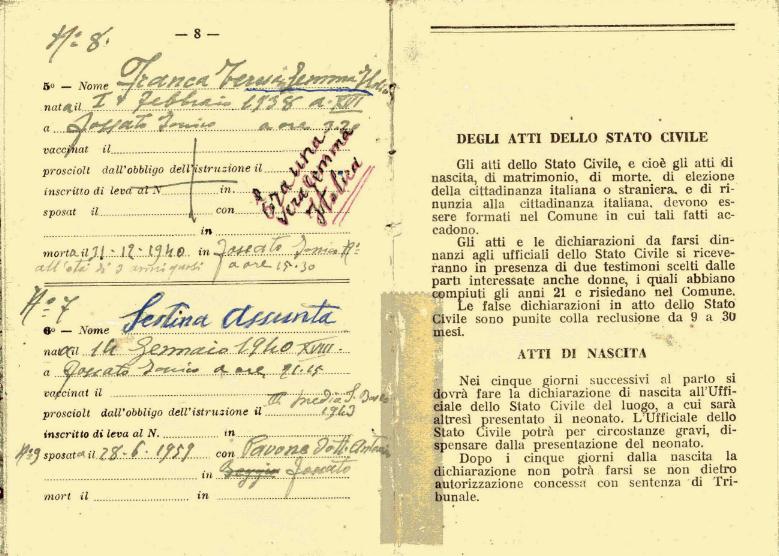 Nº 8.
— 8 —
5º — Nome Franca Teresa Gemma Italica
nata il 14 Febbraio 1938 a. XVI
a Fossato Ionico a ore
vaccinat il
prosciolt dall'obbligo dell'istruzione il
inscritto di leva al N. in
sposat il con
in
morta il 31-12-1940 in Fossato Ionico Rº
all'età di 3 anni quasi a ore 15.30
Era una
vera gemma
Italica
Nº 7
6º — Nome Sestina Assunta
nata il 14 Gennaio 1940 XVIII.
a Fossato Ionico a ore 21.15
vaccinat il
prosciolt dall'obbligo dell'istruzione il media
inscritto di leva al N. in
sposata il 28-6-1959 con Pavone Dott. Antonio
in Fossato
mort il in
DEGLI ATTI DELLO STATO CIVILE
Gli atti dello Stato Civile, e cioè gli atti di
nascita, di matrimonio, di morte, di elezione
della cittadinanza italiana o straniera, e di ri-
nunzia alla cittadinanza italiana, devono es-
sere formati nel Comune in cui tali fatti ac-
cadono.
Gli atti e le dichiarazioni da farsi din-
nanzi agli ufficiali dello Stato Civile si riceve-
ranno in presenza di due testimoni scelti dalle
parti interessate anche donne, i quali abbiano
compiuti gli anni 21 e risiedano nel Comune.
Le false dichiarazioni in atto dello Stato
Civile sono punite colla reclusione da 9 a 30
mesi.
ATTI DI NASCITA
Nei cinque giorni successivi al parto si
dovrà fare la dichiarazione di nascita all'Uffi-
ciale dello Stato Civile del luogo, a cui sarà
altresì presentato il neonato. L'Ufficiale dello
Stato Civile potrà per circostanze gravi, di-
spensare dalla presentazione del neonato.
Dopo i cinque giorni dalla nascita la
dichiarazione non potrà farsi se non dietro
autorizzazione concessa con sentenza di Tri-
bunale.